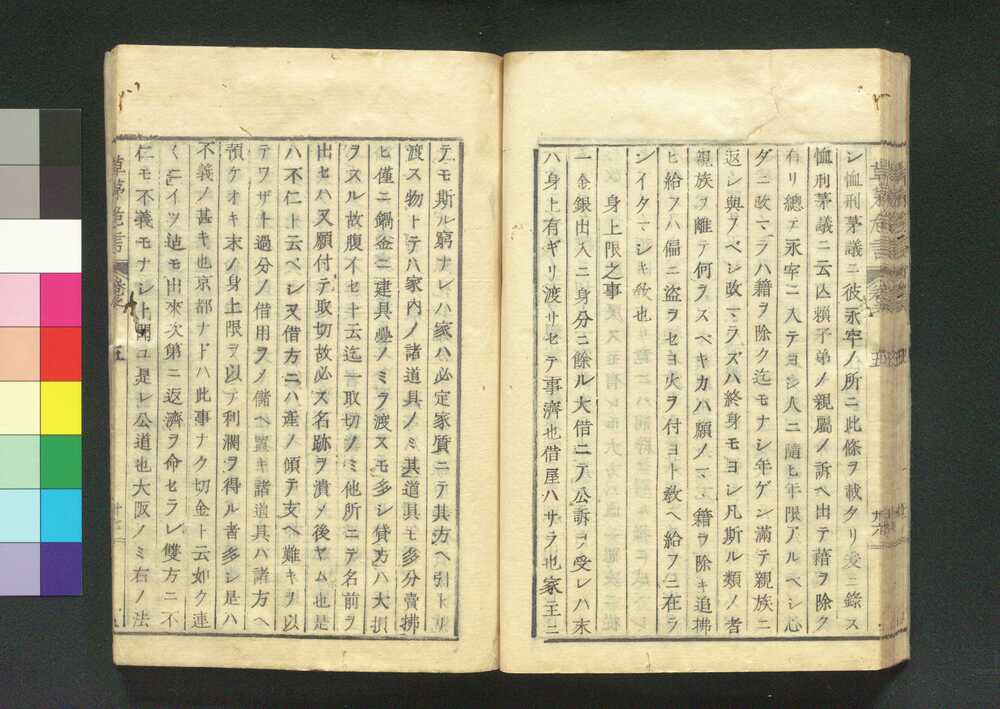 シ恤刑茅議ニ彼永牢ノ所ニ此條ヲ載タリ爰ニ錄ス
恤刑茅議ニ云凶賴子弟ノ親屬ノ訴ヘ出テ藉ヲ除ク
有リ總テ永牢ニ入テヨシ人ニ隨ヒ年限アルベシ心
ダニ改マラハ籍ヲ除ク迄モナシ年ゲン滿テ親族ニ
返シ與フベシ改マラズハ終身モヨシ凡斯ル類ノ者
親族ヲ離テ何ヲスベキカハ願ノマヽ籍ヲ除キ追拂
ヒ給フハ偏ニ盜ヲセヨ火ヲ付ヨト敎ヘ給フニ在ラ
シイタマシキ敎也
身上限之事
一金銀出入ニ身分ニ餘ル大借ニテ公訴ヲ受レハ末
ハ身上有ギリ渡サセテ事濟也借屋ハサラ也家主ニ
テモ斯ル窮ナレハ家ハ必定家質ニテ其方ヘ引トリ
渡ス物トテハ家內ノ諸道具ノミ其道具モ多分賣拂
ヒ僅ニ鍋金ニ建具疊ノミヲ渡スモ多シ貸方ハ大損
ヲスル故腹イセト云迄ニ取切ノミ他所ニテ名前ヲ
出セハ又願付テ取切故必ス名跡ヲ潰メ後ヤム也是
ハ不仁ト云ベシ又借方ニハ產ノ傾テ支ヘ難キヲ以
テワザト過分ノ借用ヲメ儲ヘ置キ諸道具ハ諸方ヘ
預ケオキ末ノ身上限ヲ以テ利潤ヲ得ル者多シ是ハ
不義ノ甚キ也京都ナドハ此事ナク切金ト云如ク連
〱ニイツ迠モ出來次第ニ返濟ヲ命セラレ雙方ニ不
仁モ不義モナシト聞ユ是レ公道也大阪ノミ右ノ法
草茅危言